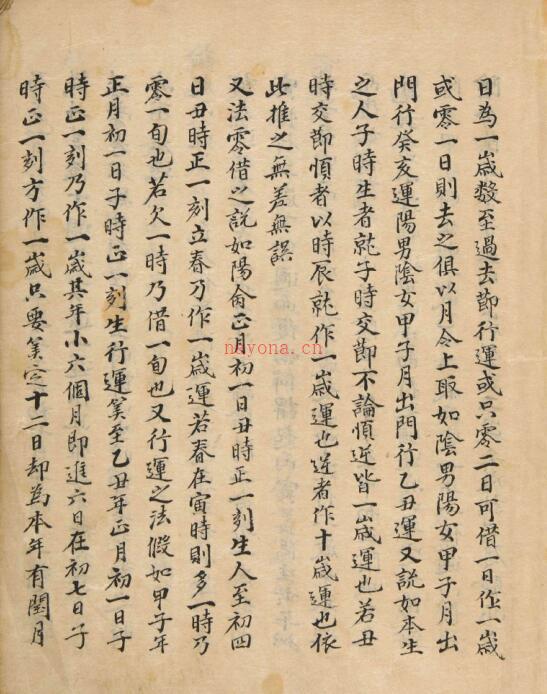 日為一歲數至過去節行運或只零二日可借一日作一歲
或零一日則去之俱以月令上取如陰男陽女甲子月出
門行癸亥運陽男陰女甲子月出門行乙丑運又說如本生
之人子時生者就子時交節不論順逆皆一歲運也若丑
時交節順者以時辰就作一歲運也逆者作十歲運也依
此推之無差無誤
又法零借之說如陽命正月初一日丑時正一刻生人至初四
日丑時正一刻立春乃作一歲運若春在寅時則多一時乃
零一旬也若欠一時乃借一旬也又行運之法假如甲子年
正月初一日子時正一刻生行運筭至乙丑年正月初一日子
時正一刻乃作一歲其年小六個月即進六日在初七日子
時正一刻方作一歲只要筭定十二日却為本年有閏月
nayona.cn